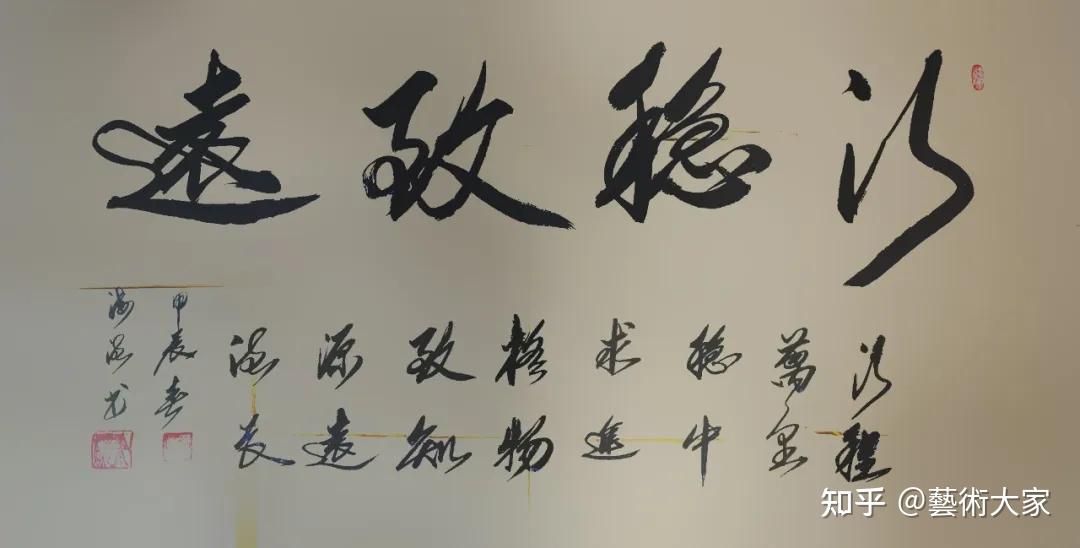 行稳致遠
行程
萬里
稳中
求進
格物
致知
源遠
流長
甲辰春
书
知乎 @藝術大家